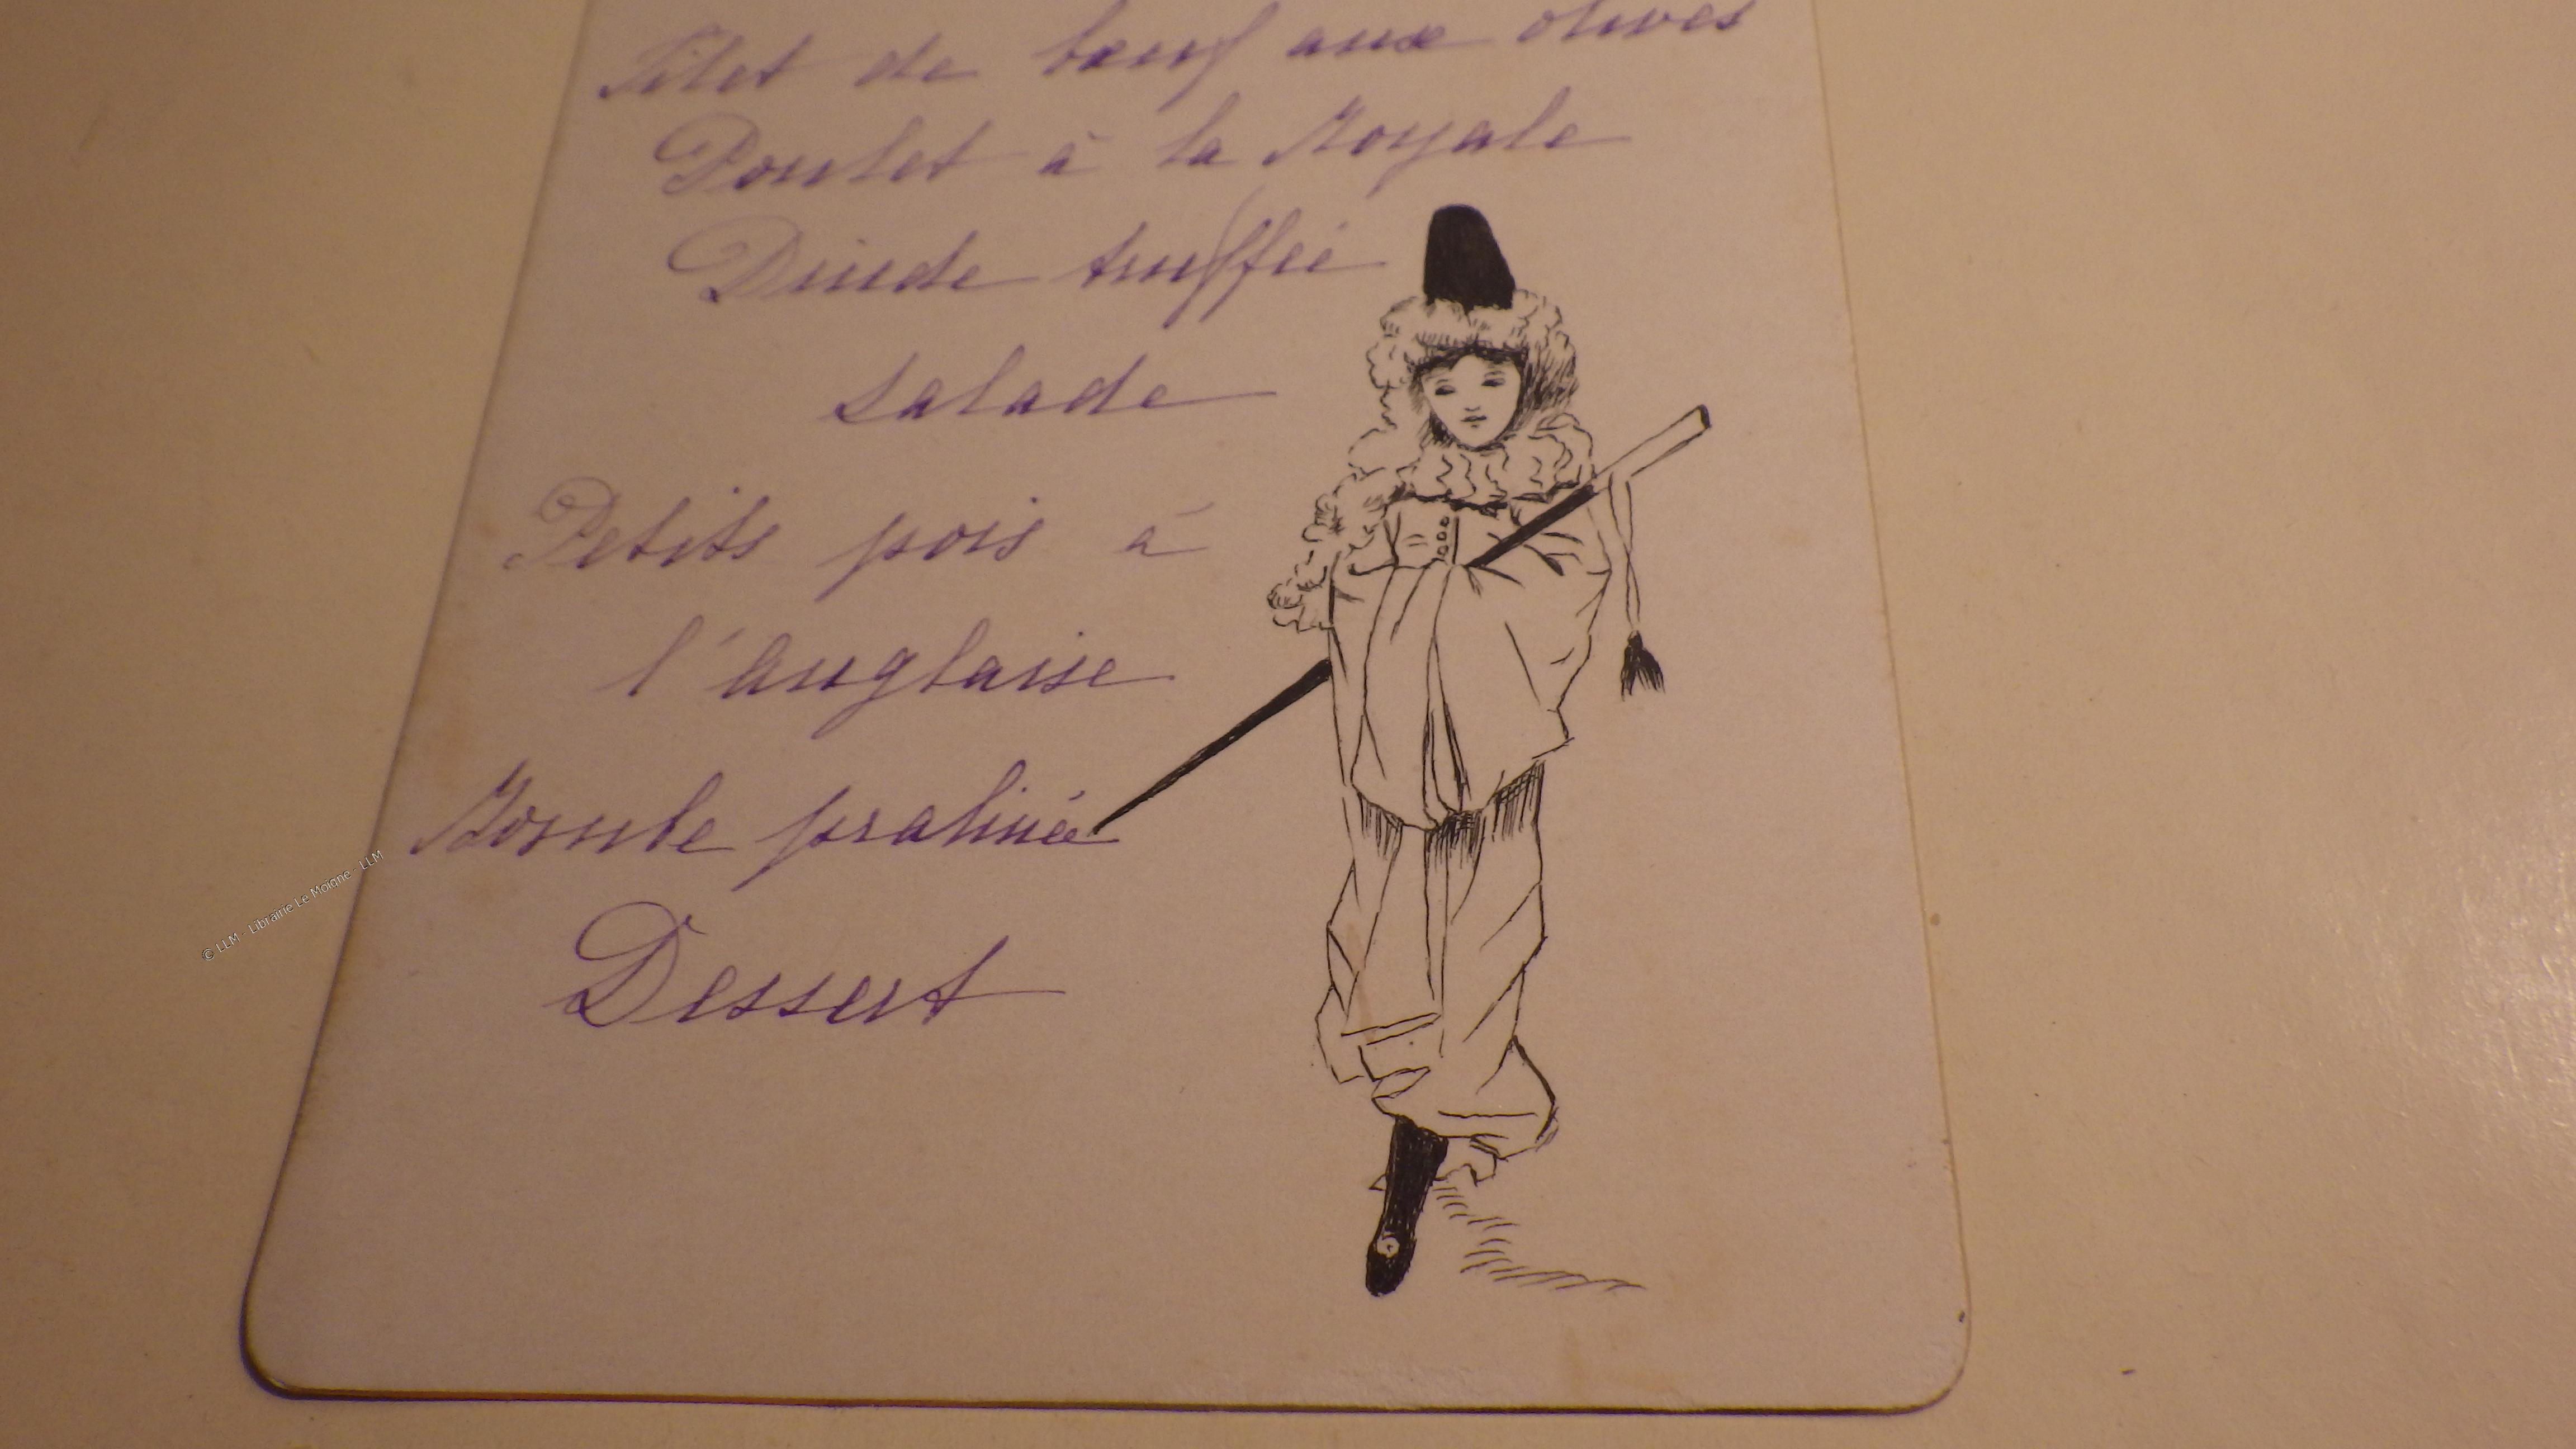 Filet de bœuf aux olives
Poulet à la Royale
Dinde truffée
Salade
Petits pois à
l'anglaise
Bombe pralinée
Dessert
© LLM - Librairie Le Moigne - LLM